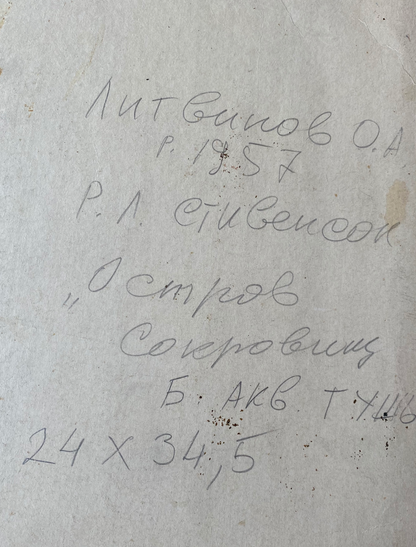 Литвинов О.А
р. 1957
Р. Л. Стивенсон
„Остров
Сокровищ
Б. АКВ. ТУШЬ
24 X 34,5